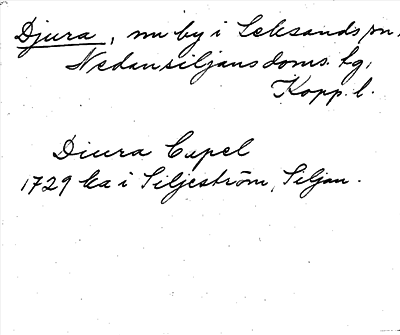 Djura, nu by i Leksands sn,
Nedansiljans doms. hg,
Kopp. l.
Diura Capel
1729 ka i Siljeström, Siljan.